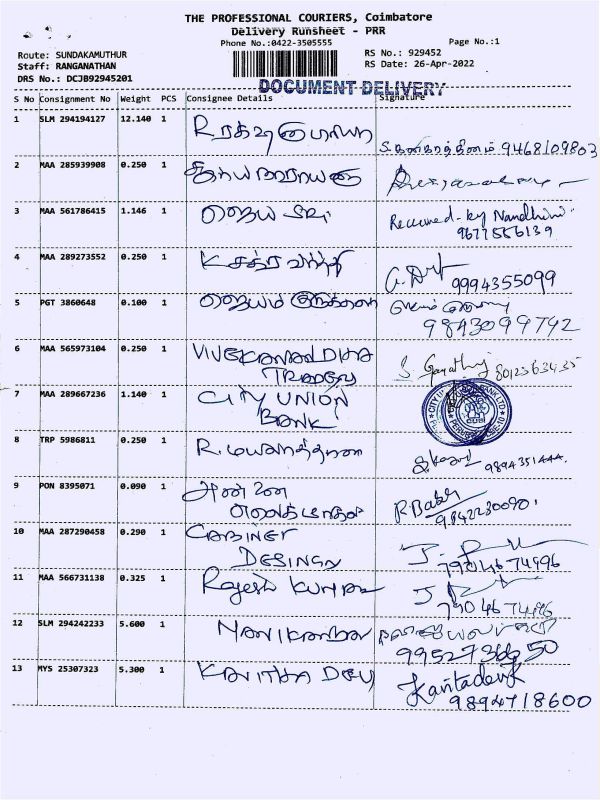 THE PROFESSIONAL COURIERS, Coimbatore
Delivery Runsheet - PRR
Phone No.:0422-3505555
Page No.:1
Route: SUNDAKAMUTHUR
Staff: RANGANATHAN
DRS No.: DCJB92945201
RS No.: 929452
RS Date: 26-Apr-2022
DOCUMENT DELIVERY
S No Consignment No Weight PCS Consignee Details Signature
1 SLM 294194127 12.140 1 R
9468109803
2 MAA 285939908 0.250 1
3 MAA 561786415 1.146 1 ஜெய ஸ்ரீ
Received by Nandhini
9677556139
4 MAA 289273552 0.250 1 K சக்ரவர்த்தி
9994355099
5 PGT 3860648 0.100 1 ஜெயம்
9843099742
6 MAA 565973104 0.250 1 VIVEKANANDHA
8012563435
7 MAA 289667236 1.140 1 CITY UNION
BANK
8 TRP 5986811 0.250 1 R.
9894351444.
9 PON 8395071 0.090 1 அன்னை
R.Babu
9842230090
10 MAA 287290458 0.290 1 CABINET
DESINGN
7904674996
11 MAA 566731138 0.325 1 Rajesh Kumar
7904674996
12 SLM 294242233 5.600 1 MANIKANDAN
9952736650
13 MYS 25307323 5.300 1 KAVITHA DEVI
Kavitadevi
9894718600